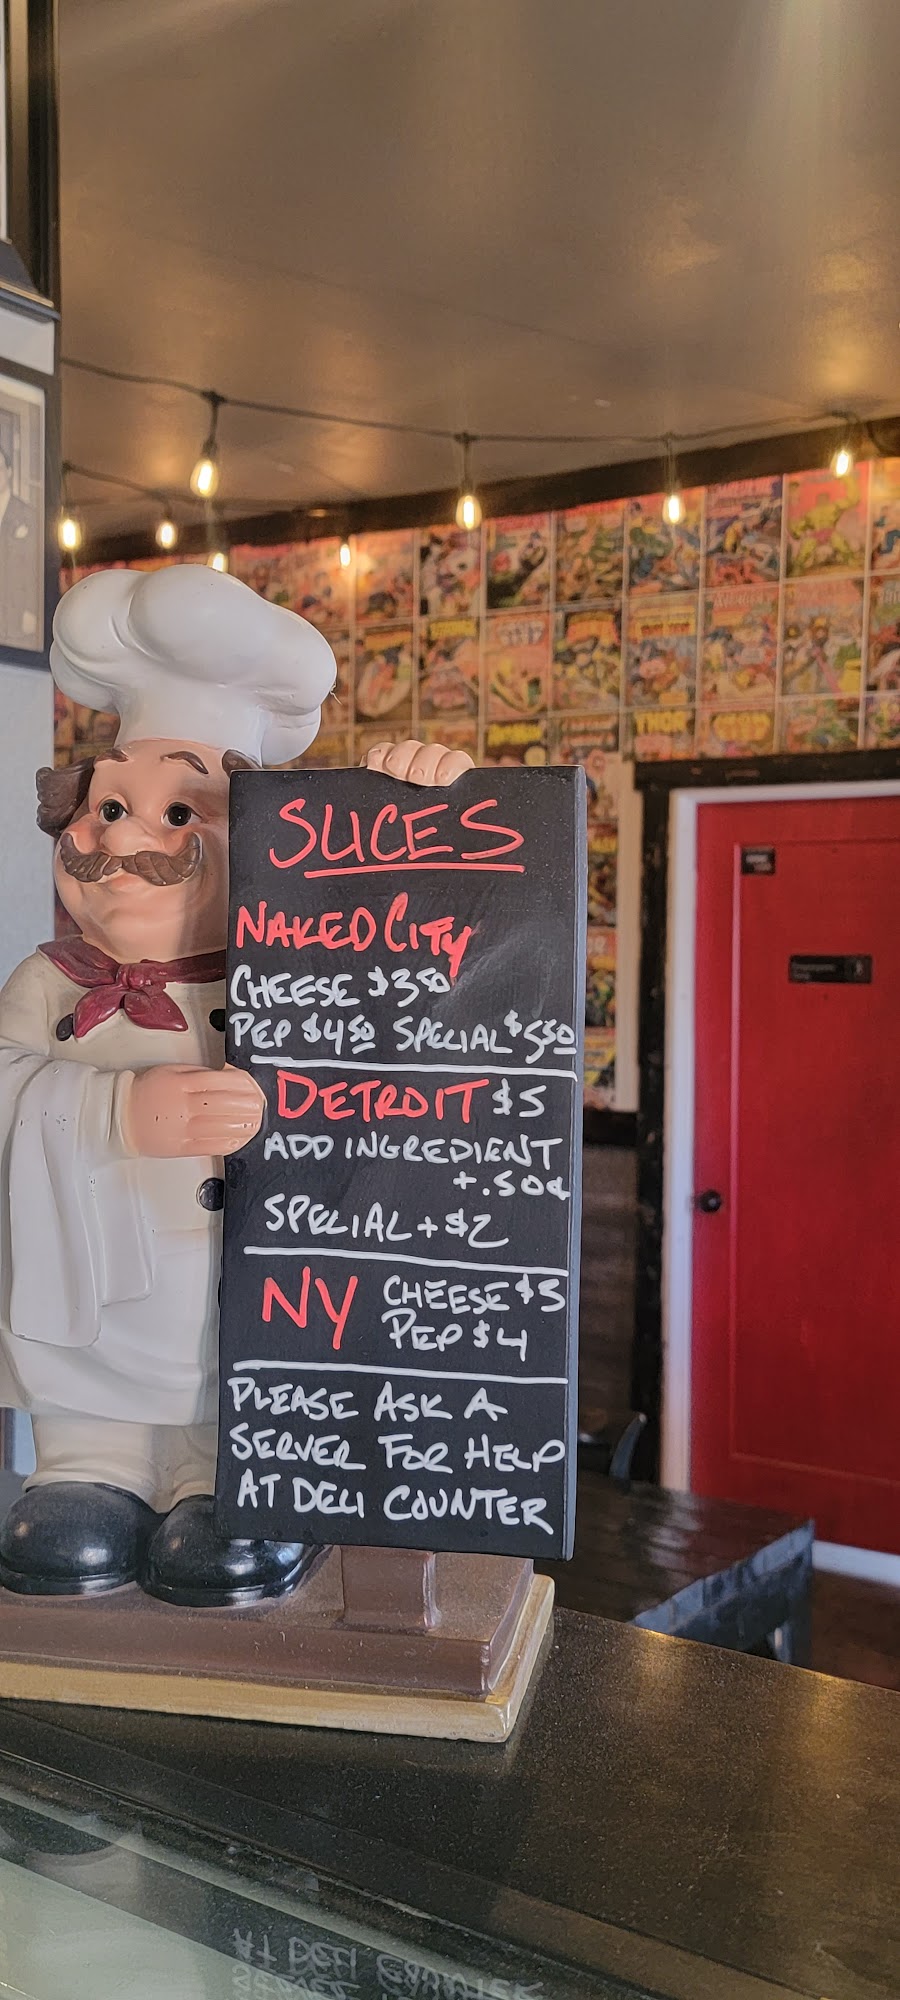 SLICES
NAKED CITY
CHEESE $3.50
PEP $4.50 SPECIAL $5.50
DETROIT $5
ADD INGREDIENT
+.50¢
SPECIAL + $2
NY CHEESE $3
PEP $4
PLEASE ASK A
SERVER FOR HELP
AT DELI COUNTER
THOR